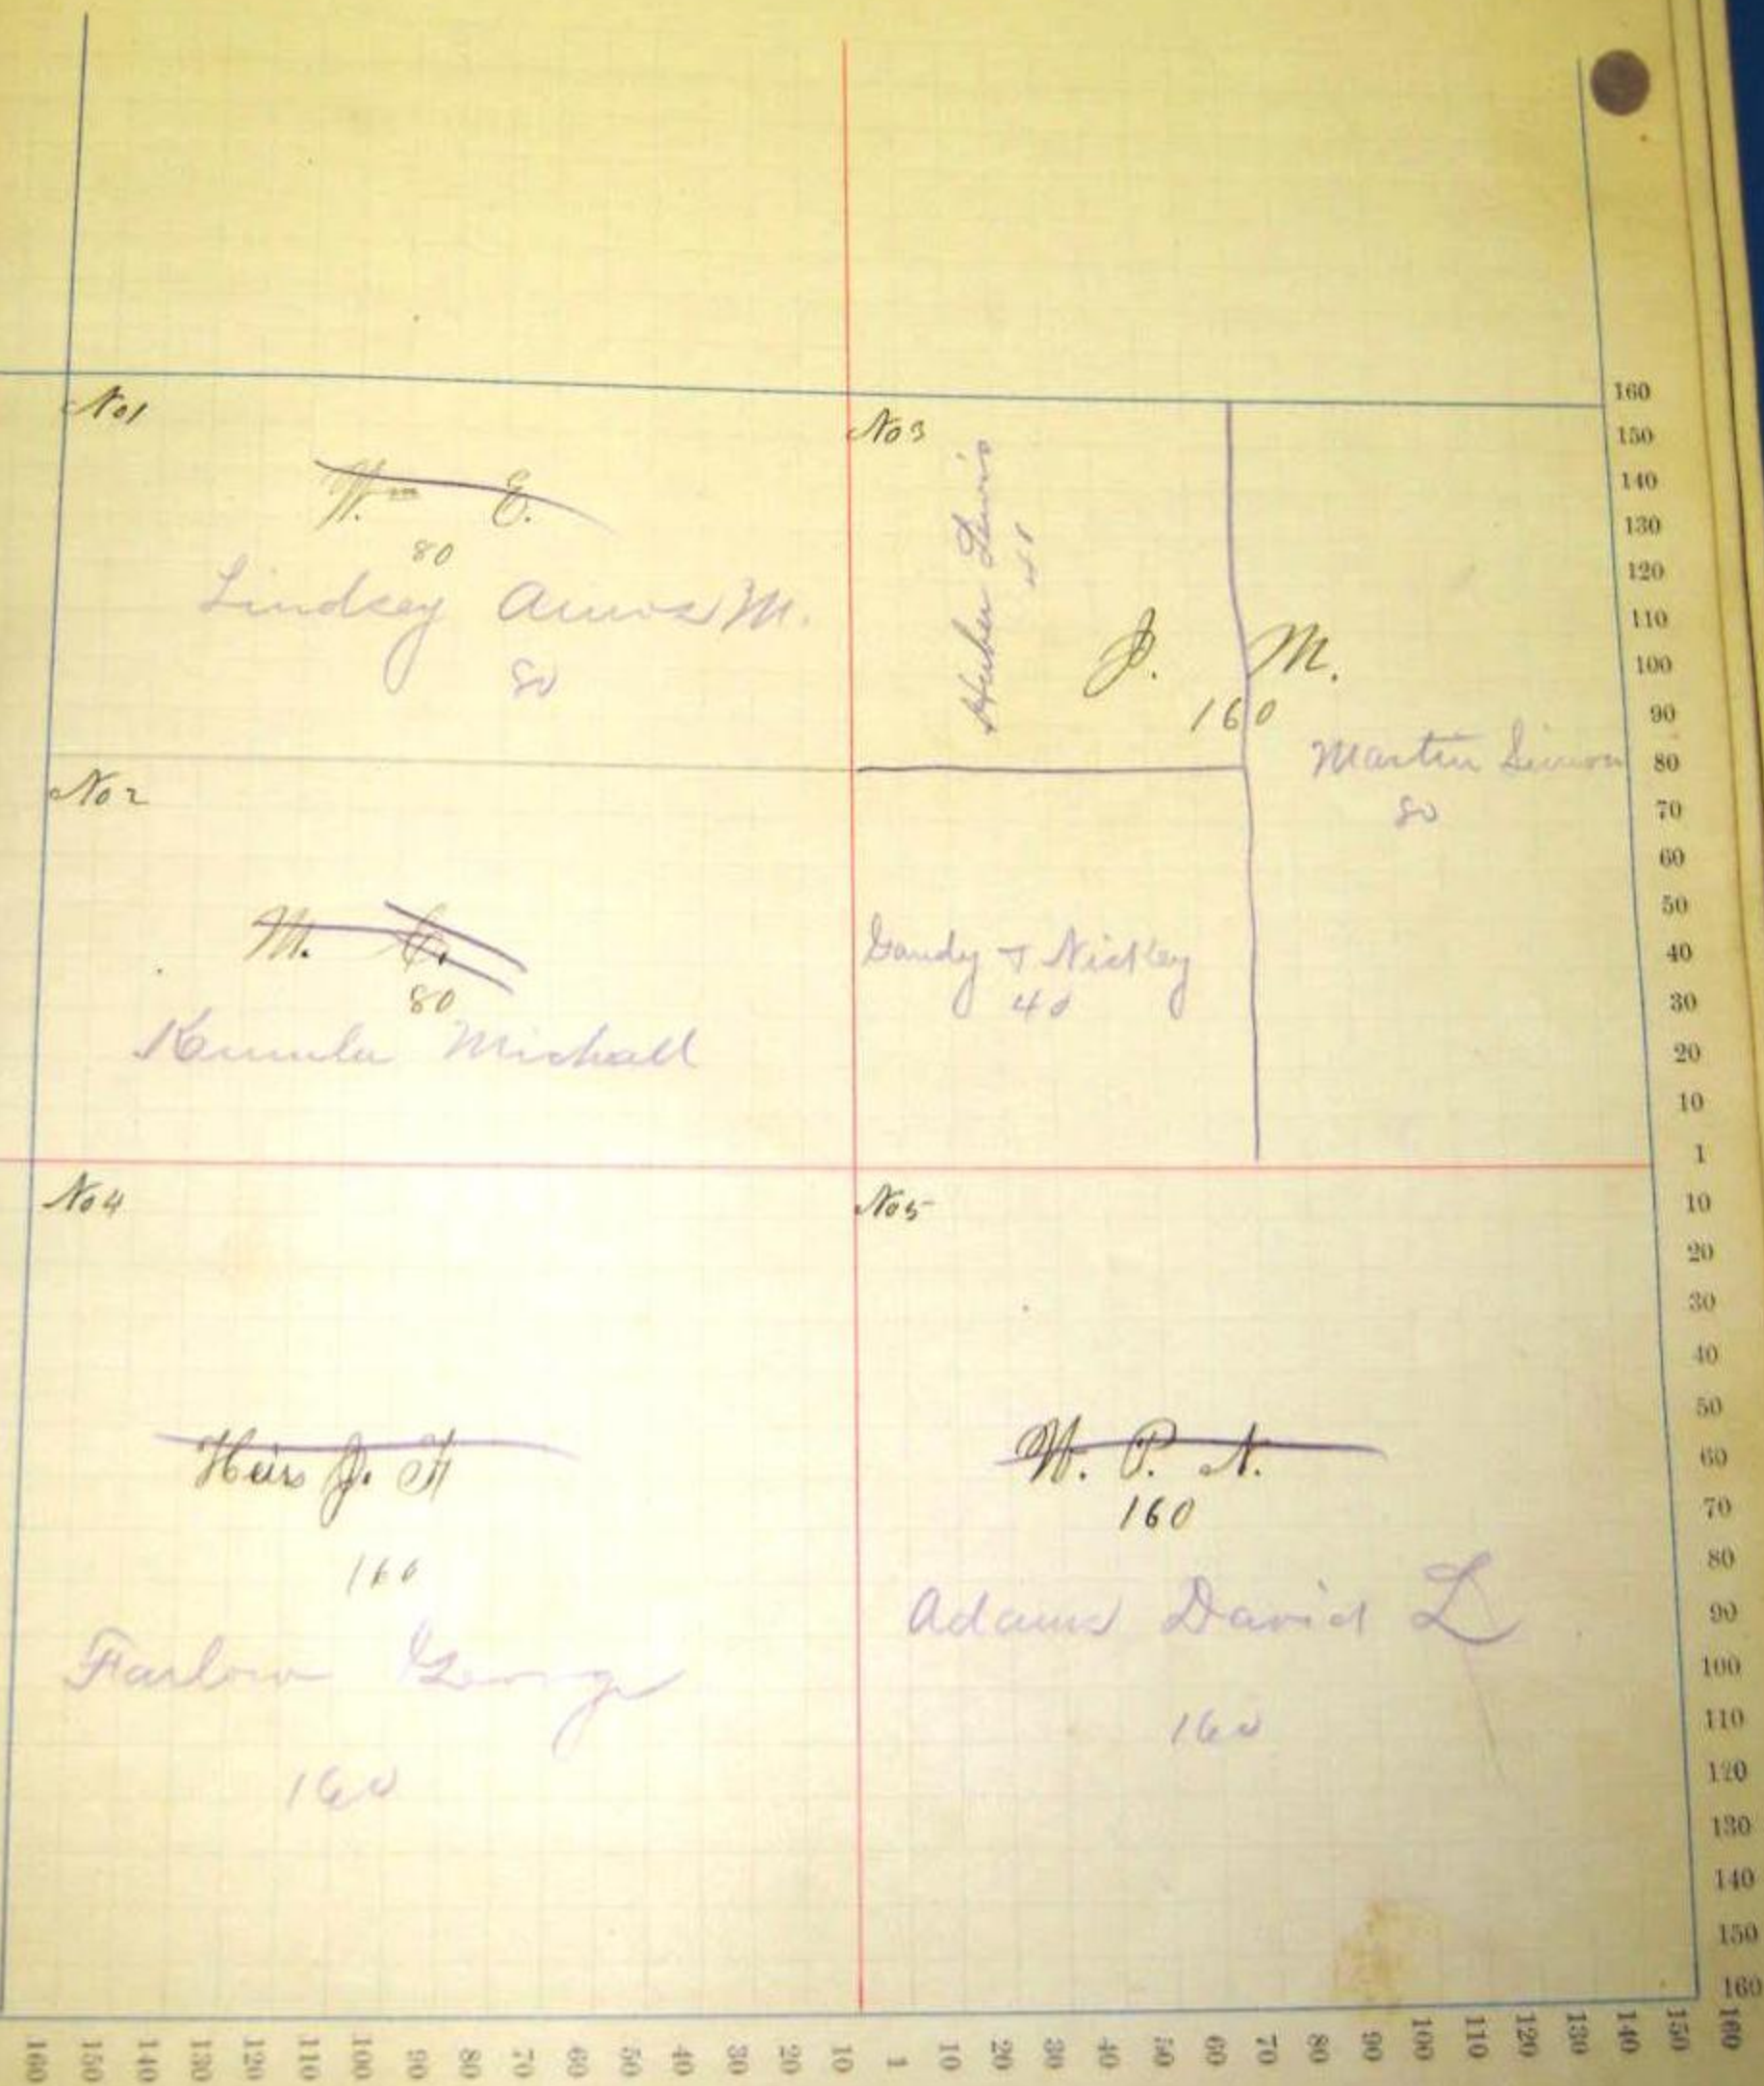 No 1
Wm E.
80
Lindsey Amos M.
80
No 2
M. C.
80
Michall
No 3
Huber Lewis
40
J. M.
160
Martin Simon
80
Gandy & Nickey
40
No 4
Heirs J. H
160
Farlow George
160
No 5
W. P. N.
160
Adams David L
160
160
150
140
130
120
110
100
90
80
70
60
50
40
30
20
10
1
10
20
30
40
50
60
70
80
90
100
110
120
130
140
150
160
160 150 140 130 120 110 100 90 80 70 60 50 40 30 20 10 1 10 20 30 40 50 60 70 80 90 100 110 120 130 140 150 160